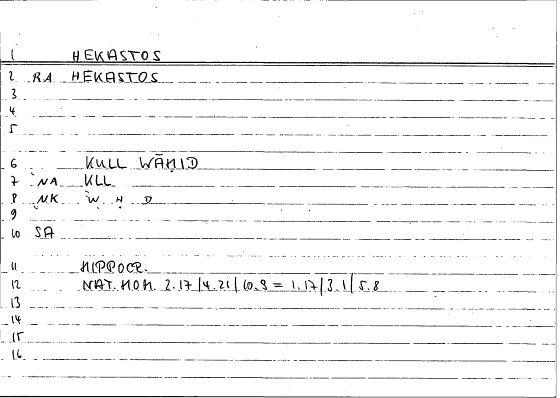 1 HEKASTOS
2 RA HEKASTOS
3
4
5
6 KULL WĀḤID
7 NA KLL
8 NK W Ḥ D
9
10 SA
11 HIPPOCR.
12 NAT. HOM. 2.17 | 4.21 | 10.9 = 1.17 | 3.1 | 5.8
13
14
15
16